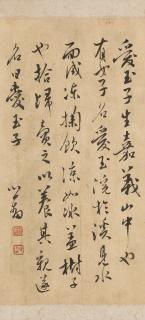 愛玉子生嘉義山中也
有女子名愛玉浣於溪見水
面成凍掬飲涼如冰蓋樹子
也拾歸賣之以養其親遂
名曰愛玉子